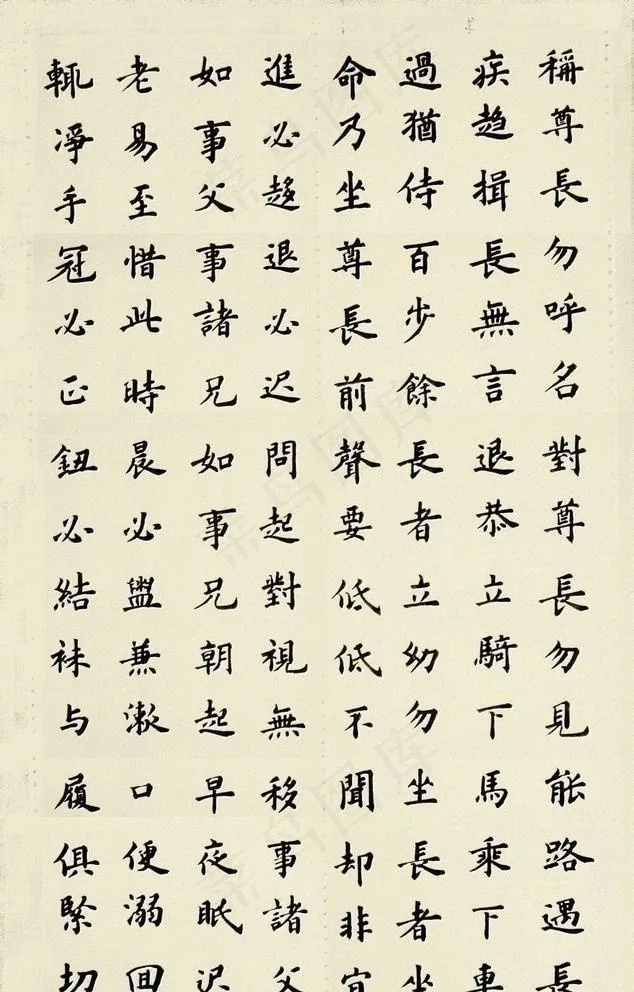 稱尊長勿呼名對尊長勿見能路遇長
疾趍揖長無言退恭立騎下馬乘下車
過猶侍百步餘長者立幼勿坐長者坐
命乃坐尊長前聲要低低不聞却非宜
進必趍退必迟問起對視無移事諸父
如事父事諸兄如事兄朝起早夜眠迟
老易至惜此時晨必盥兼漱口便溺回
輒淨手冠必正鈕必結袜与履俱緊切
菜鸟图库
菜鸟图库
菜鸟图库